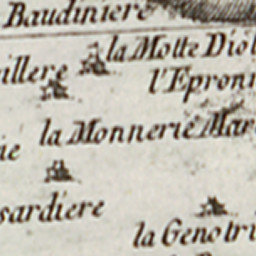 Baudiniere
la Motte Diol
illere
l'Epronn
la Monnerie Mar
ie
sardiere
la Genotri